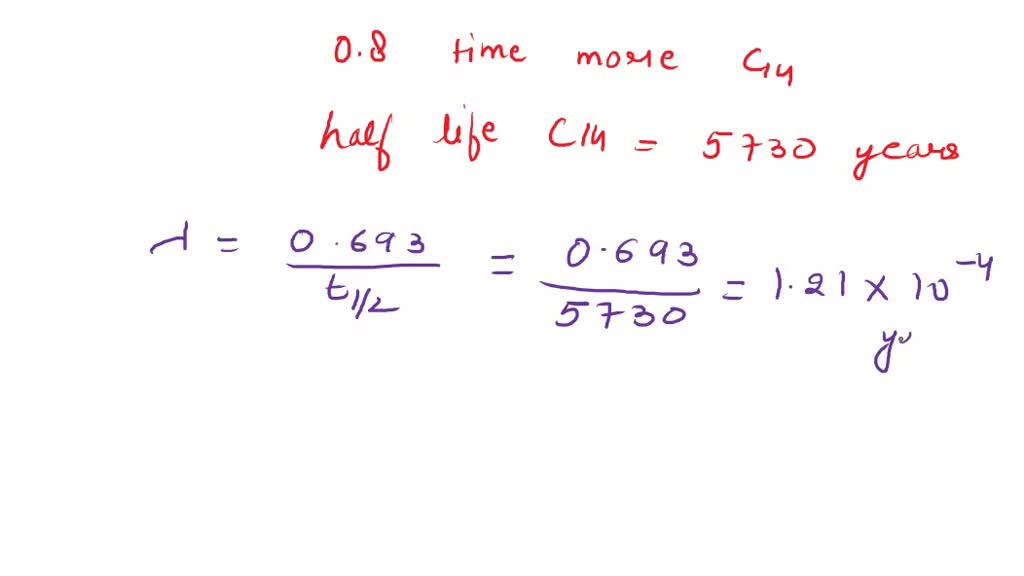 0.8 time more C14
half life C14 = 5730 years
λ = 0.693 / t1/2 = 0.693 / 5730 = 1.21 × 10^-4
y